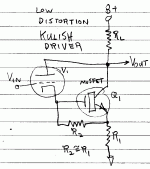 LOW
DISTORTION
KULISH
DRIVER
B+
RL
VOUT
VIN
V1
MOSFET
Q1
R2
R1
R2≅R1